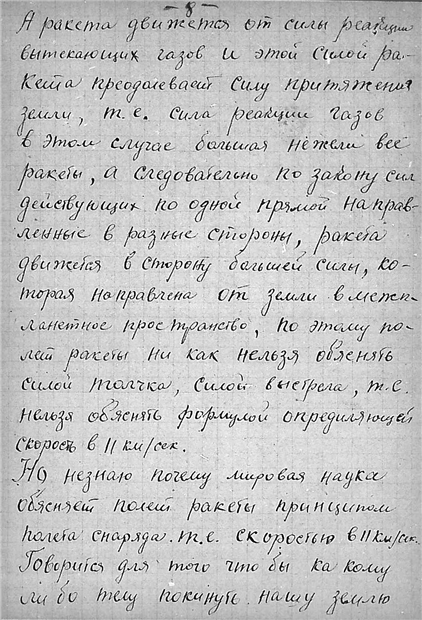 - 8 -
А ракета движется от силы реакции
вытекающих газов и этой силой ра-
кета преодолевает силу притяжения
земли, т.е. сила реакции газов
в этом случае большая нежели вес
ракеты, а следовательно по закону сил
действующих по одной прямой направ-
ленные в разные стороны, ракета
движется в сторону большей силы, ко-
торая направлена от земли в межп-
ланетное пространство, по этому по-
лет ракеты ни как нельзя обяснять
силой толчка, силой выстрела, т.е.
нельзя обяснять формулой определяющей
скорость в 11 км/сек.
Но незнаю почему мировая наука
обясняет полет ракеты принципом
полета снаряда. т.е. скоростью в 11 км/сек.
Говорится для того что бы ка кому
ли бо телу покинуть нашу землю